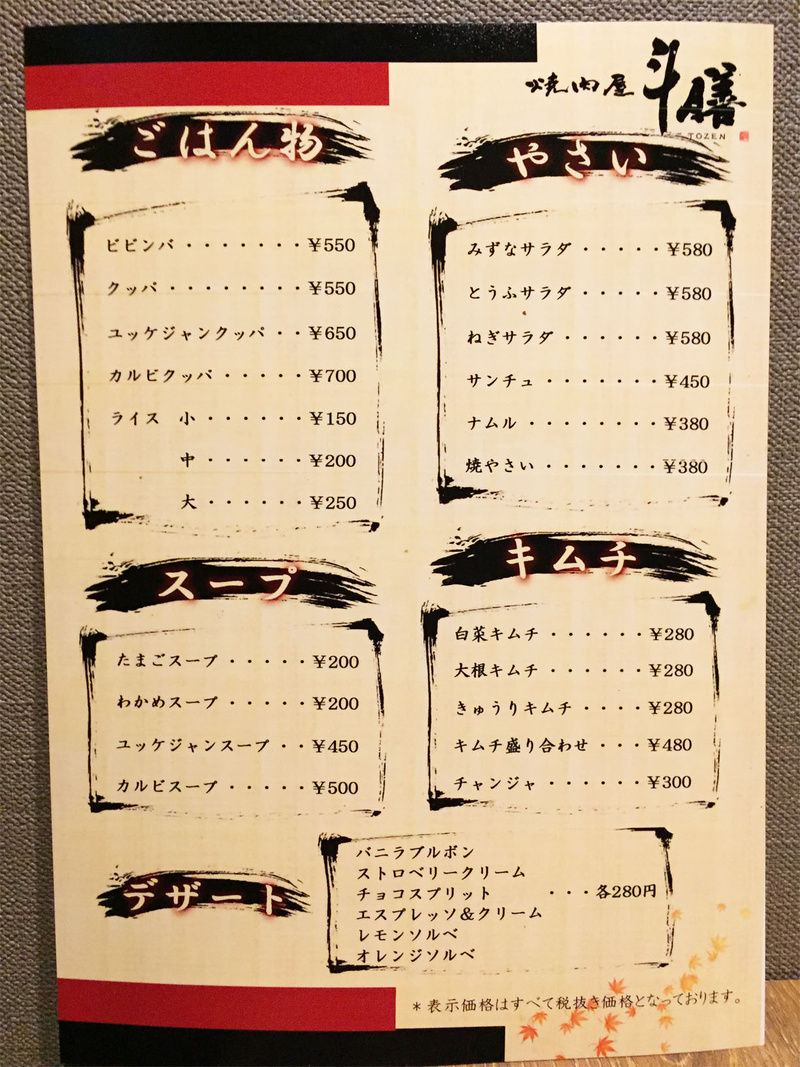 焼肉屋 斗膳
TOZEN
ごはん物
ビビンバ・・・・・・・¥550
クッパ・・・・・・・・¥550
ユッケジャンクッパ・・¥650
カルビクッパ・・・・・¥700
ライス 小・・・・・・¥150
中・・・・・・¥200
大・・・・・・¥250
やさい
みずなサラダ・・・・・¥580
とうふサラダ・・・・・¥580
ねぎサラダ・・・・・・¥580
サンチュ・・・・・・・¥450
ナムル・・・・・・・・¥380
焼やさい・・・・・・・¥380
スープ
たまごスープ・・・・・¥200
わかめスープ・・・・・¥200
ユッケジャンスープ・・¥450
カルビスープ・・・・・¥500
キムチ
白菜キムチ・・・・・・¥280
大根キムチ・・・・・・¥280
きゅうりキムチ・・・・¥280
キムチ盛り合わせ・・・¥480
チャンジャ・・・・・・¥300
デザート
バニラブルボン
ストロベリークリーム
チョコスプリット ・・・各280円
エスプレッソ&クリーム
レモンソルベ
オレンジソルベ
*表示価格はすべて税抜き価格となっております。